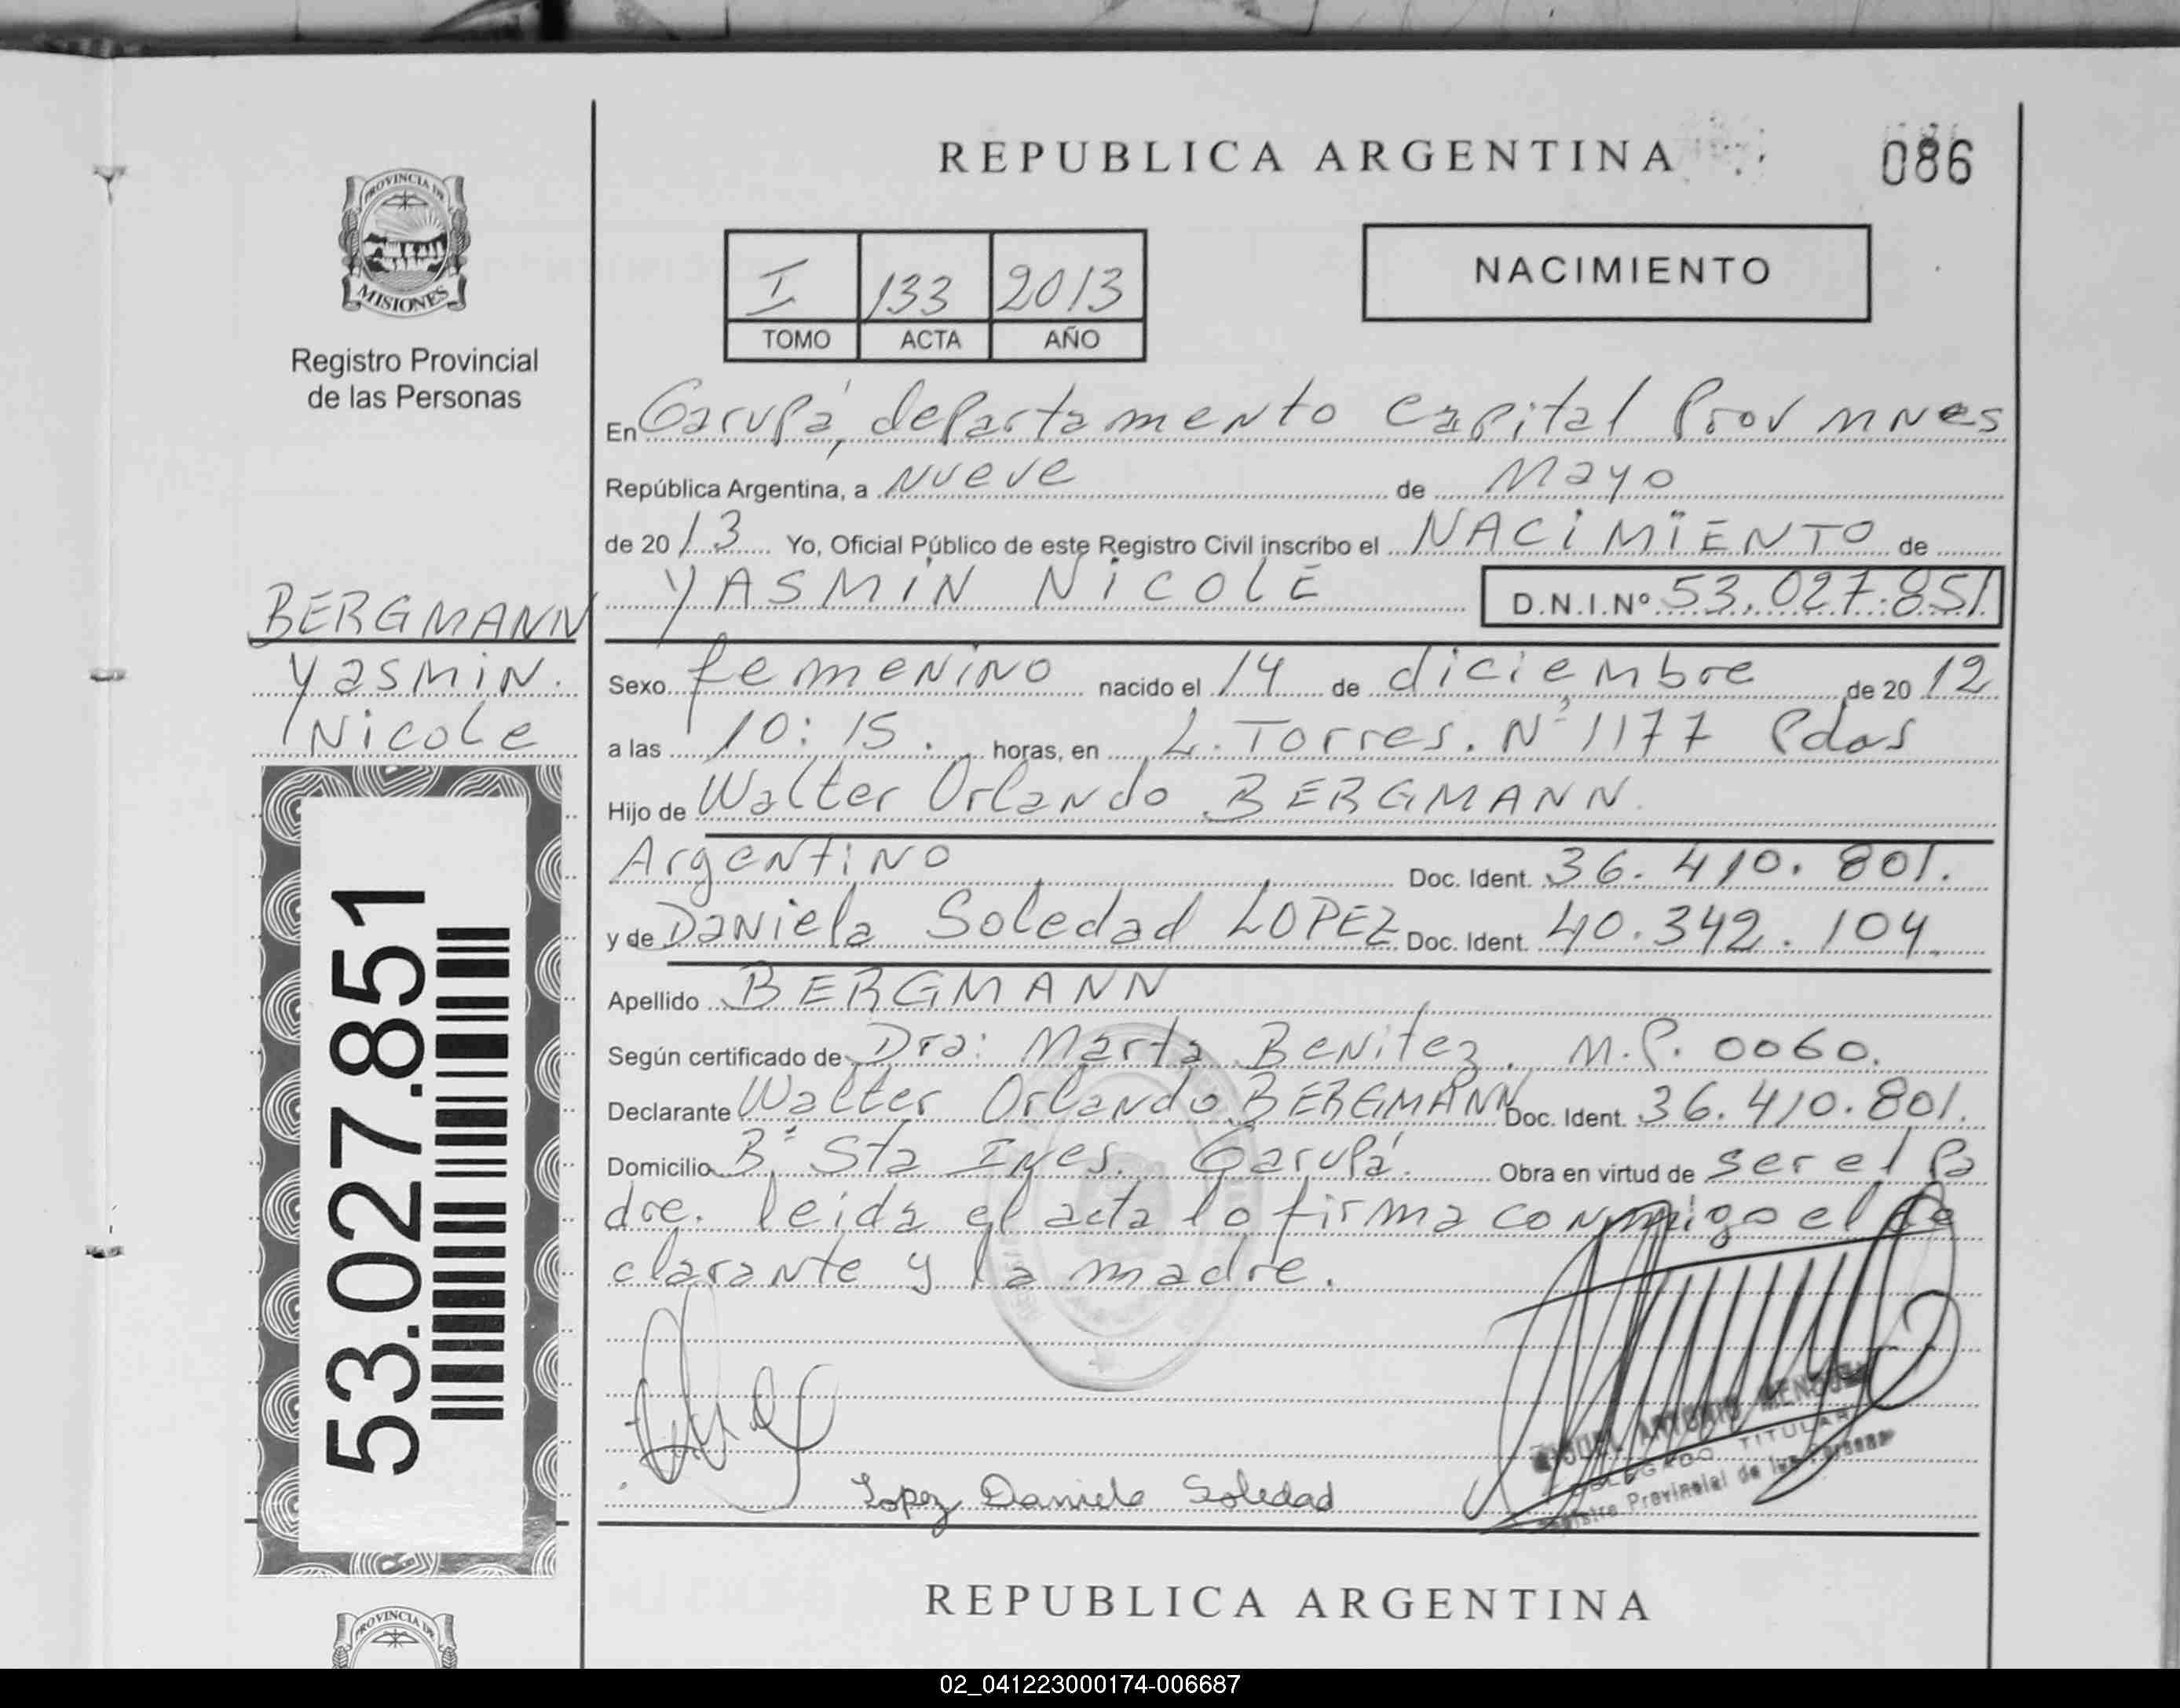 REPUBLICA ARGENTINA
086
PROVINCIA DE
MISIONES
Registro Provincial
de las Personas
I 133 2013
TOMO ACTA AÑO
NACIMIENTO
En Garupá, departamento Capital Prov Mnes
República Argentina, a Nueve de Mayo
de 2013 Yo, Oficial Público de este Registro Civil inscribo el NACIMIENTO de
YASMIN NICOLE D.N.I.Nº 53.027.851
BERGMANN
Yasmin.
Nicole
53.027.851
Sexo femenino nacido el 14 de diciembre de 2012
a las 10:15. horas, en L. Torres. Nº 1177 Pdas
Hijo de Walter Orlando BERGMANN.
Argentino Doc. Ident. 36.410.801.
y de Daniela Soledad LOPEZ Doc. Ident. 40.342.104
Apellido BERGMANN
Según certificado de Dra: Marta Benitez. M.P. 0060.
Declarante Walter Orlando BERGMANN Doc. Ident. 36.410.801.
Domicilio Bº Sta Ines. Garupá. Obra en virtud de ser el Pa
dre. leida el acta lo firma conmigo el de
clarante y la madre.
Lopez Daniela Soledad
ANTONIO
DELEGADO TITULAR
Registro Provincial de las Personas
REPUBLICA ARGENTINA
PROVINCIA DE
02_041223000174-006687